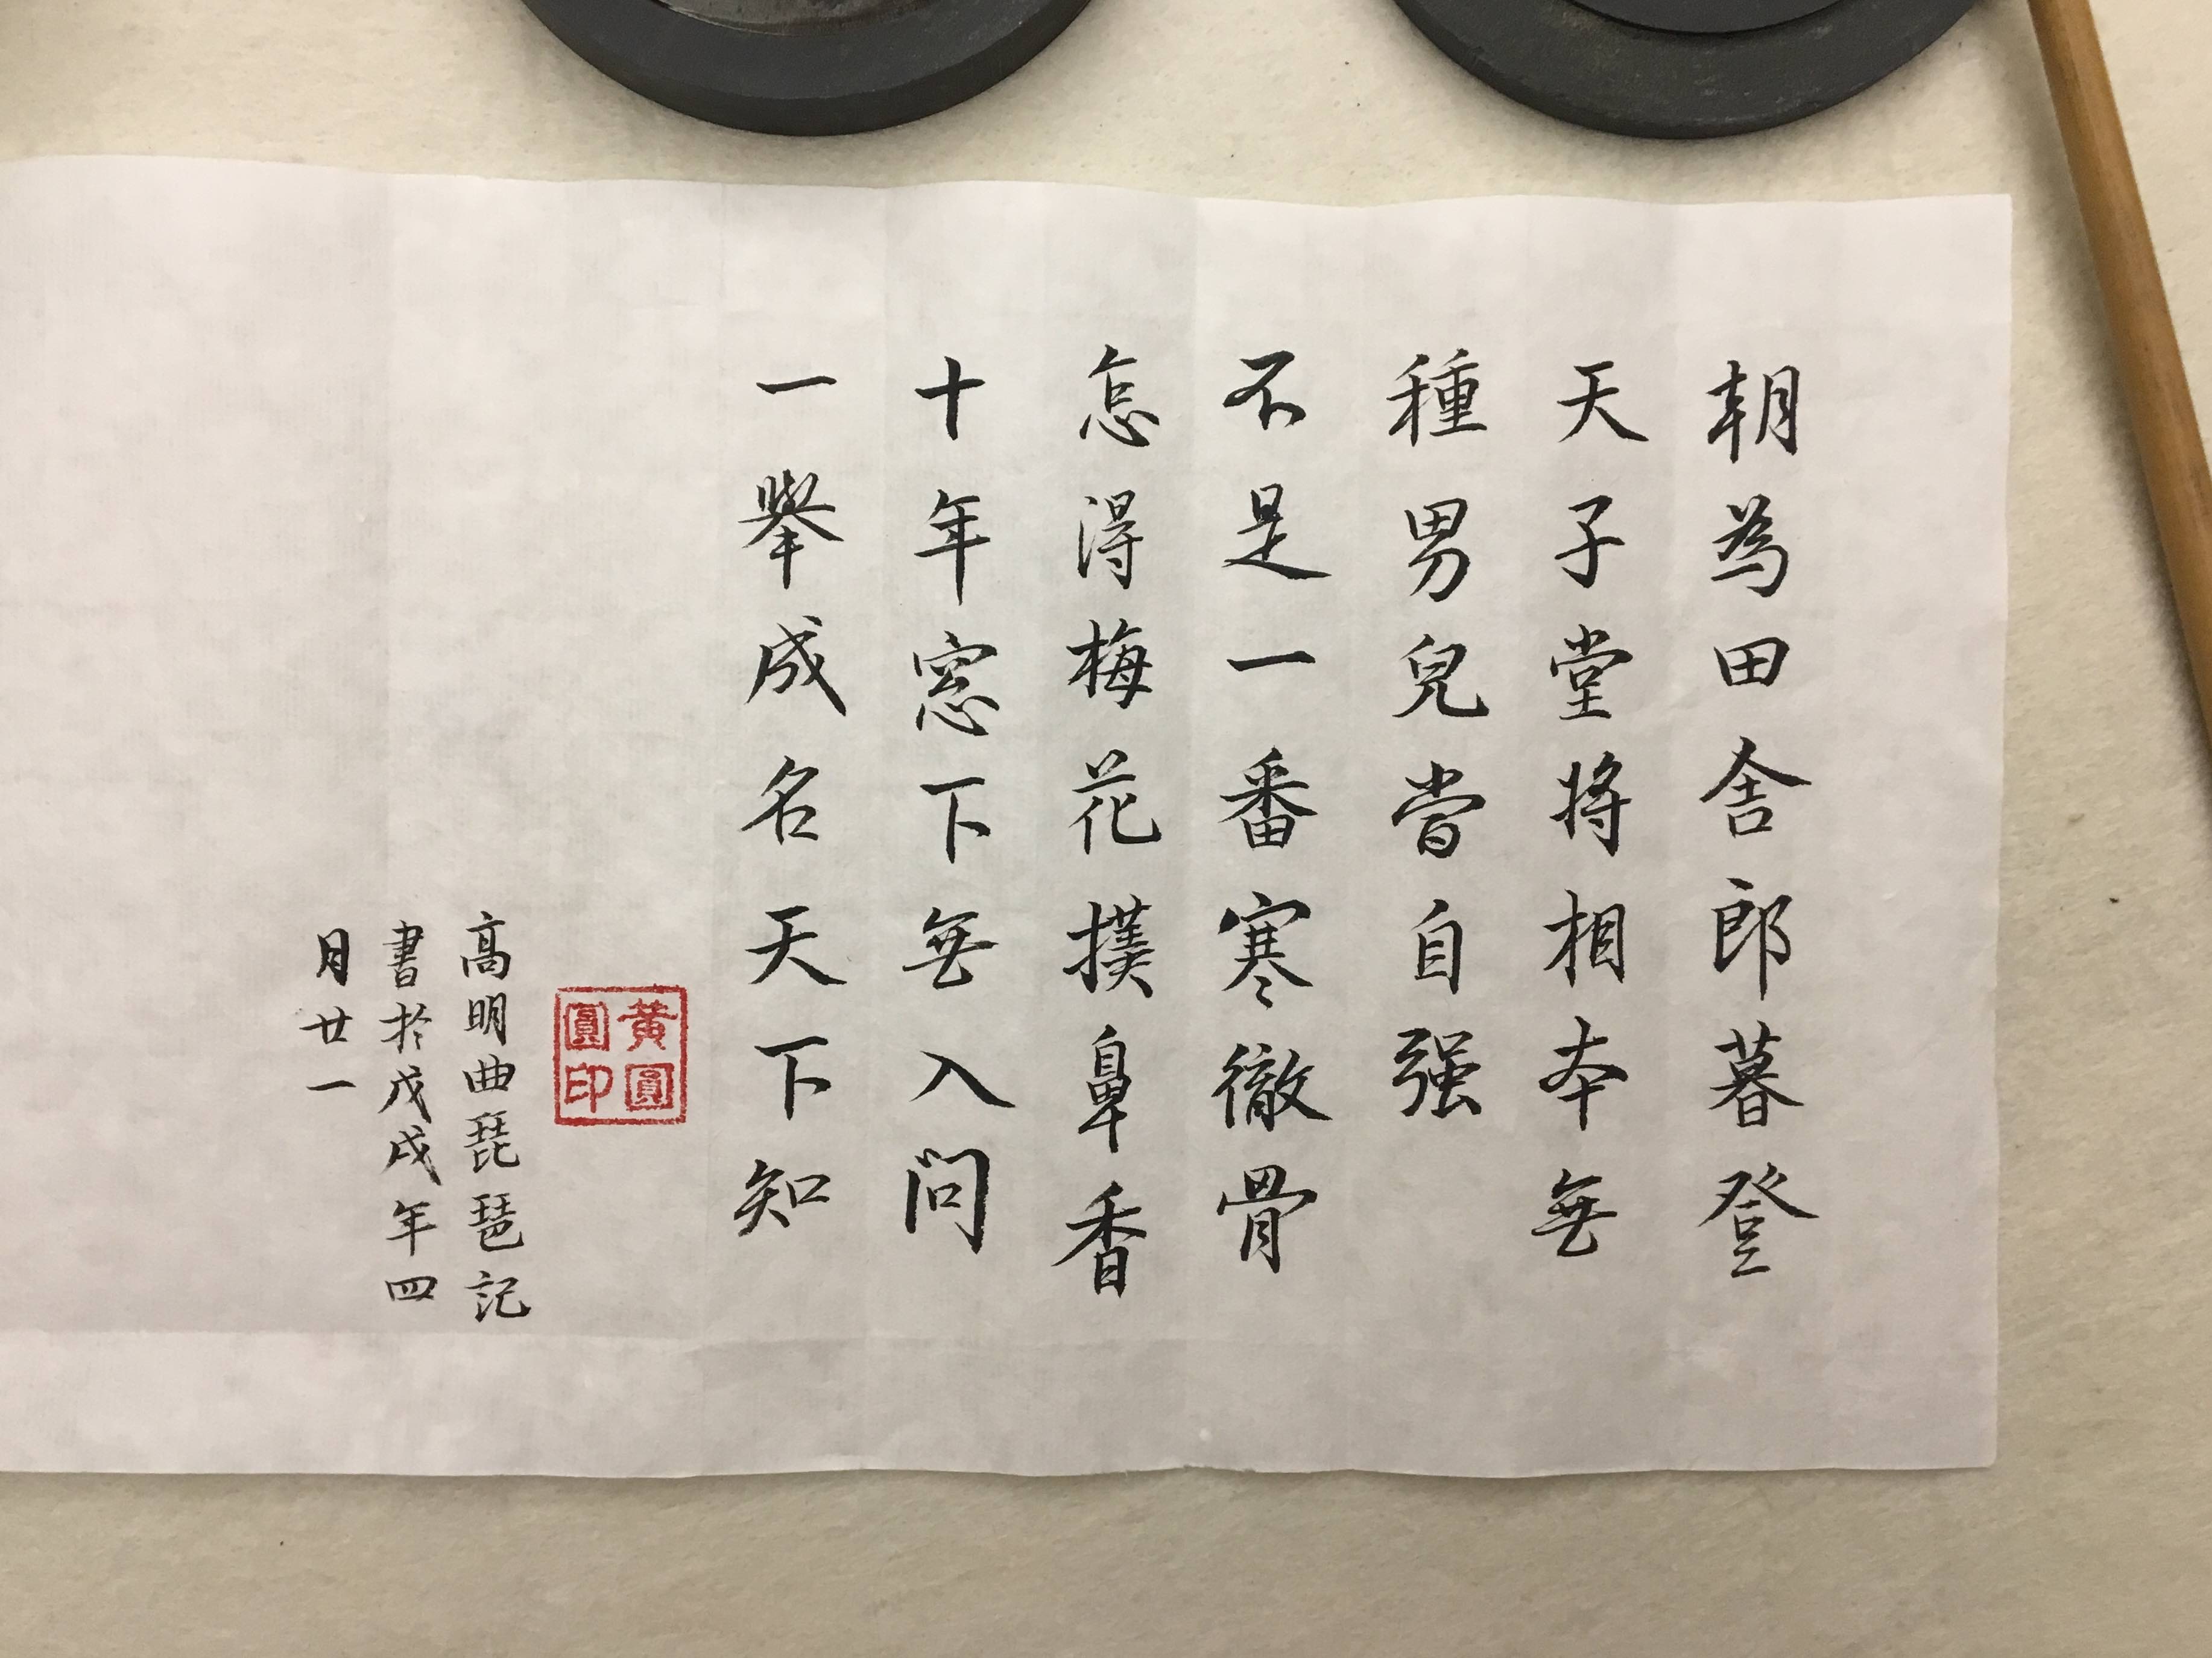 朝為田舍郎暮登
天子堂將相本無
種男兒當自强
不是一番寒徹骨
怎得梅花撲鼻香
十年窓下無人問
一舉成名天下知
黃圓
圓印
高明曲琵琶記
書於戊戌年四
月廿一